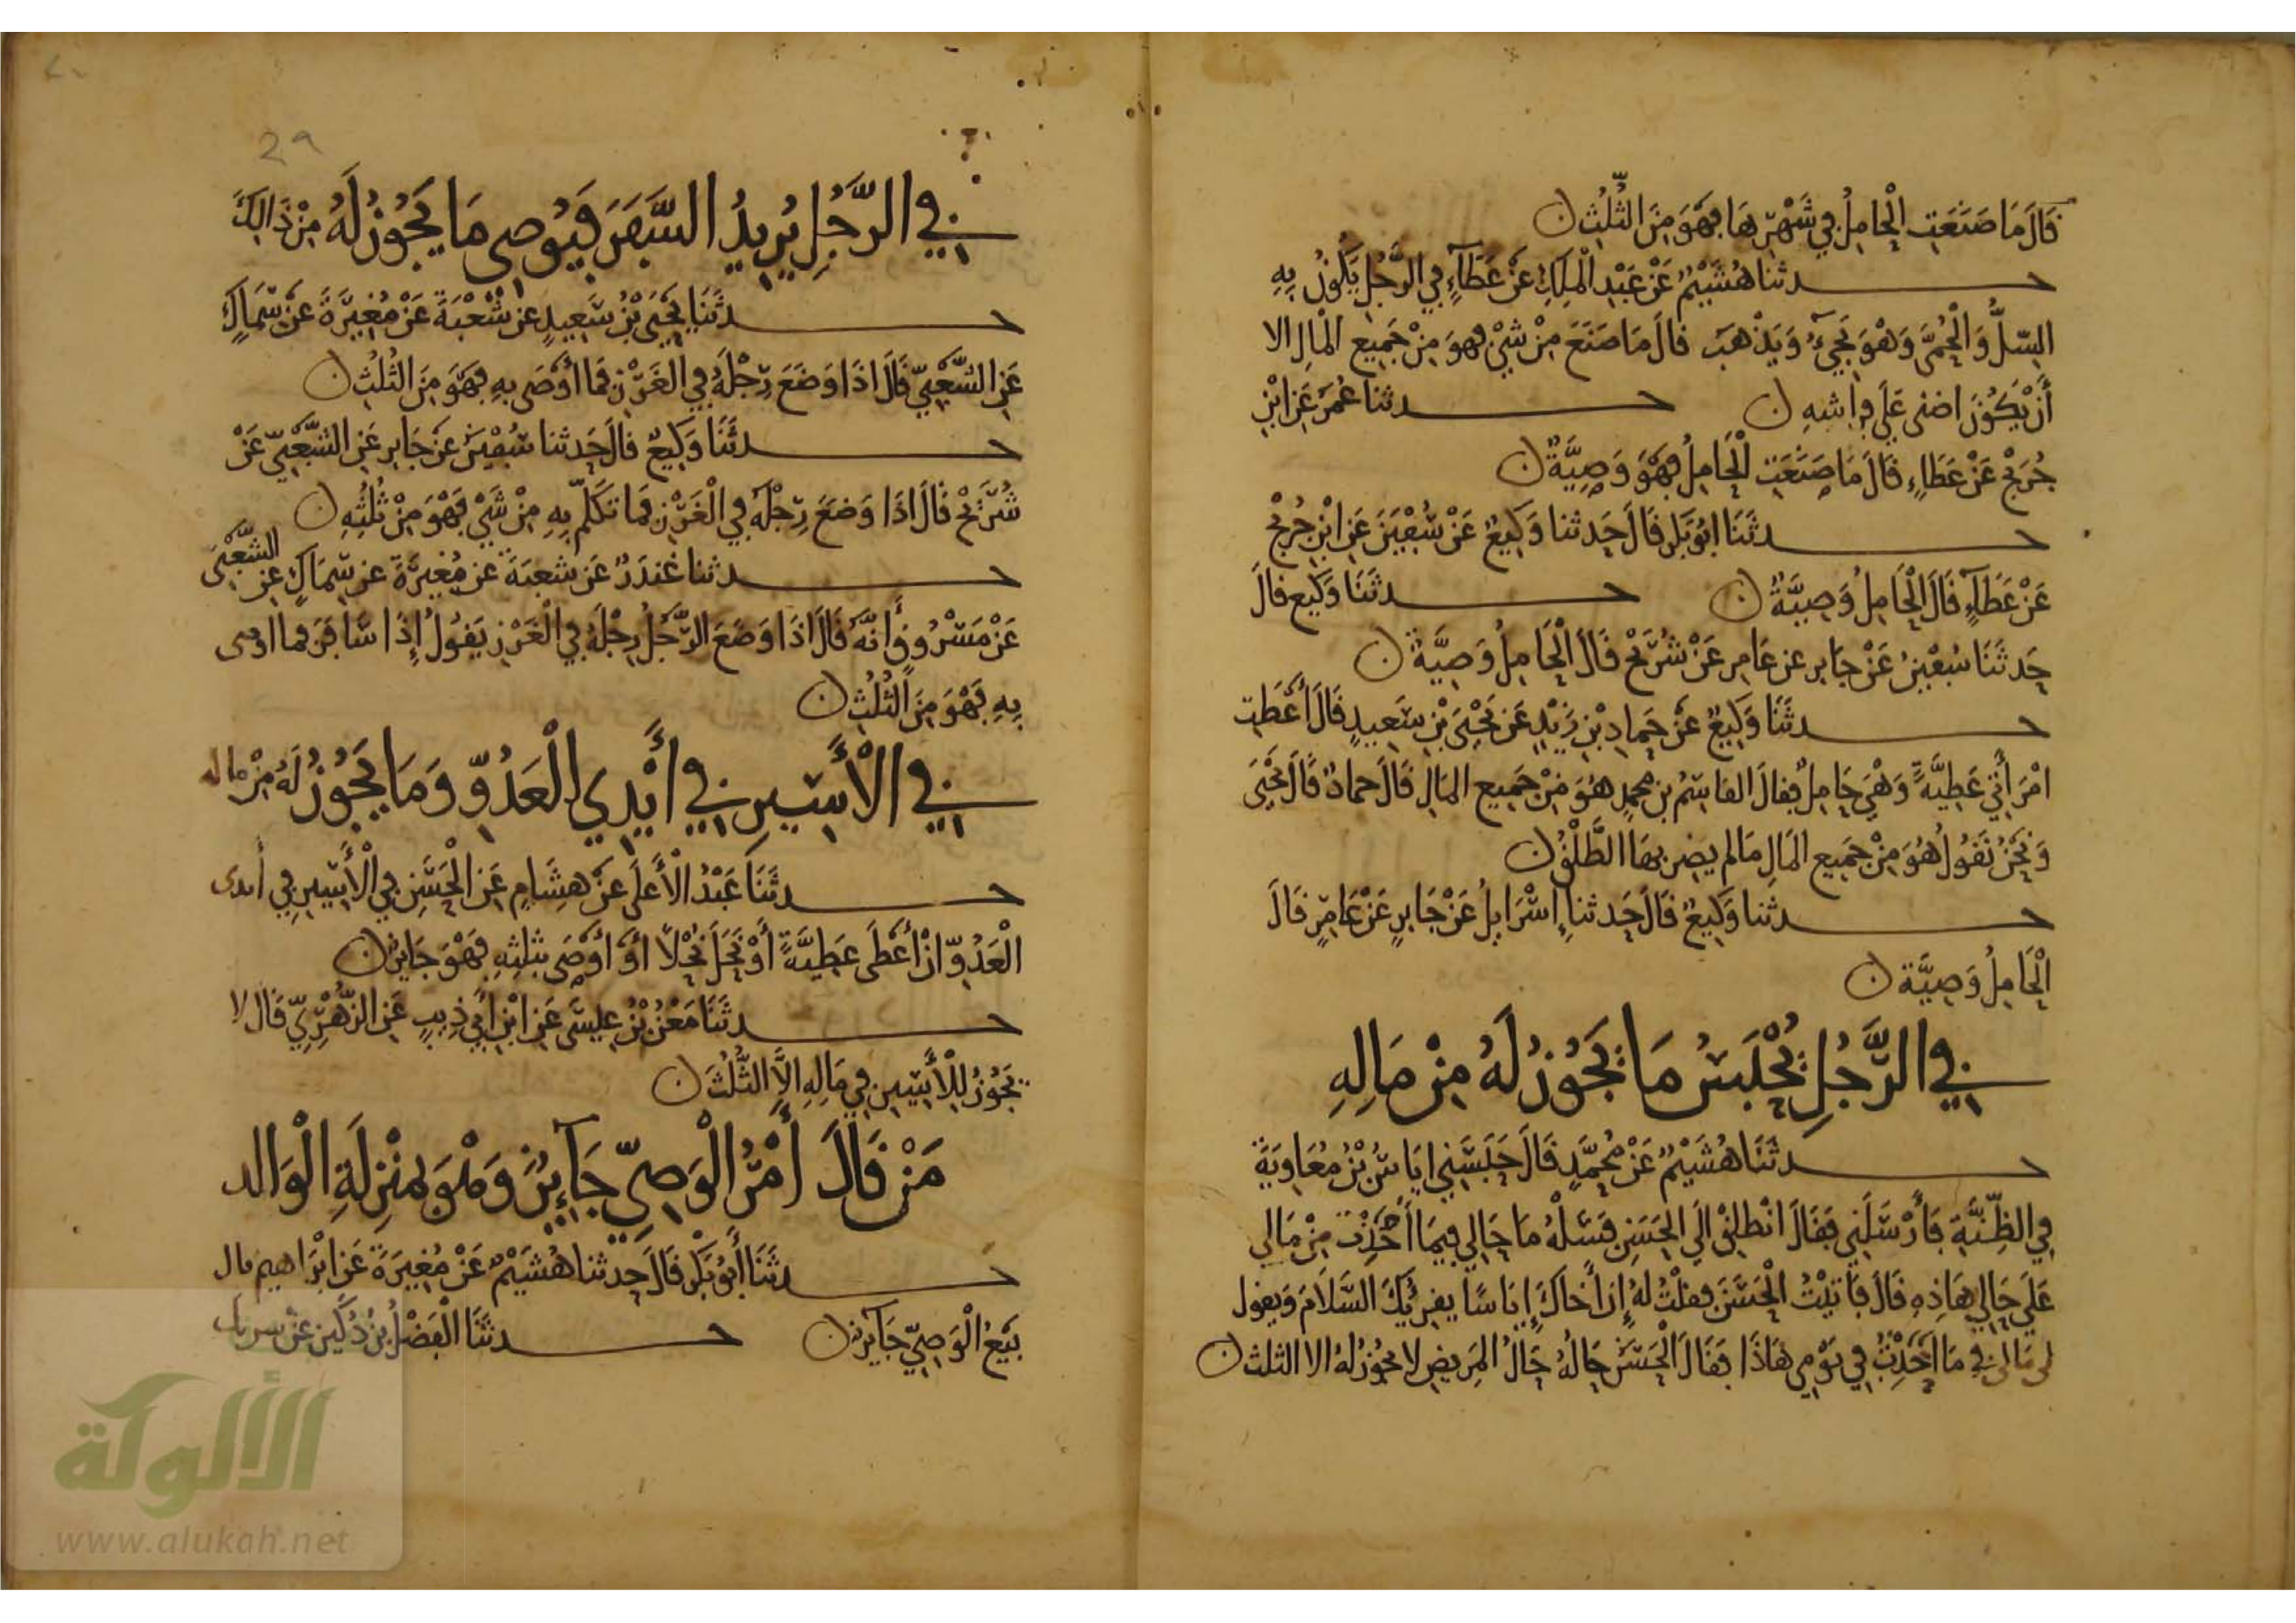 قَالَ مَا صَنَعَتِ الْحَامِلُ فِي شَهْرِهَا فَهْوَ مِنَ الثُّلُثِ
حدثنا هُشَيْمٌ عَنْ عَبْدِ الْمَلِكِ عَنْ عَطَآءٍ فِي الرَّجُلِ يَكُونُ بِهِ
السِّلُّ وَالْحُمَّى وَهْوَ يَجِيءُ وَيَذْهَبُ قَالَ مَا صَنَعَ مِنْ شَيْءٍ فَهوَ مِنْ جَمِيعِ الْمَالِ الا
أَنْ يَكُونَ اضنى عَلَى فِراشِهِ حدثنا عُمَرُ عَنِ ابْنِ
جُرَيْجٍ عَنْ عَطَاءٍ قَالَ مَا صَنَعَتِ الْحَامِلُ فَهْوَ وَصِيَّةٌ
حدثَنَا ابُو بَكْرٍ قَالَ حَدثنا وَكِيعٌ عَنْ سُفْيَنَ عَنِ ابْنِ جُرَيْجٍ
عَنْ عَطَآءٍ قَالَ الْحَامِلُ وَصِيَّةٌ حدثَنَا وَكِيع قَالَ
حَدثَنَا سُفْيَنُ عَنْ جَابِرٍ عَنْ عَامِرٍ عَنْ شُرَيْحٍ قَالَ الْحَامِلُ وَصِيَّةٌ
حدثَنَا وَكِيعٌ عَنْ حَمادِ بْنِ زَيْدٍ عَنْ يَحْيَى بْنِ سَعِيدٍ قَالَ أَعْطَتِ
امْرَأَتِي عَطِيَّةً وَهْيَ حَامِلٌ فَقَالَ القَاسِمُ بن محمدٍ هُوَ مِنْ جَمِيعِ المَالِ قَالَ حمادٌ قَالَ يَحْيَى
وَنَحْنُ نَقُولُ هُوَ مِنْ جَمِيعِ الْمَالِ مَا لم يضربهَا الطَّلْقُ
حدثنا وَكِيعٌ قَالَ حَدثنا إِسْرَايِلُ عَنْ جَابِرٍ عَنْ عَامِرٍ قَالَ
الْحَامِلُ وَصِيَّة
فِي الرَّجُلِ يُحْبَسُ مَا يَجُوزُ لَهُ مِنْ مَالِهِ
حدثَنَا هُشَيْمٌ عَنْ مُحَمَّدٍ قَالَ حَبَسَنِي ايَاسُ بْنُ مُعَاوِيَةَ
فِي الظِّنَّةِ فَأَرْسَلَنِي فَقَالَ انْطلِقْ الَى الحَسَنِ فَسَلْهُ مَا حَالِي فِيمَا أَحْدَثْتُ مِنْ مَالِي
عَلَى حَالِي هَاذِهِ قَالَ فَأَتَيْتُ الْحَسَنَ فقلْتُ لهُ إِنَّ أَخَاكَ إِيَاسًا يقرِئُكَ السَّلَامَ وَيقول
لى مَالى فِي مَا أَحْدَثْتُ فِي يَوْمِي هَاذَا فَقَالَ الْحَسَنُ حَالُهُ حَالُ المَرِيضِ لا يجُوزُ لهُ الا الثلث
فِي الرَّجُلِ يُرِيدُ السَّفَرَ فَيُوصِي مَا يَجُوزُ لَهُ مِنْ ذَالِكَ
حدثَنَا يَحْيَى بْنُ سَعِيدٍ عن شُعْبَةَ عَنْ مُغِيرَةَ عَنْ سِمَاكٍ
عَنِ الشَّعْبِيِّ قَالَ اذَا وَضَعَ رِجْلَهُ فِي الغَرْزِ فَمَا أَوْصَى بِهِ فَهْوَ مِنَ الثُلُثِ
حدثَنَا وَكِيعٌ قَالَ حَدثنا سُفْيَنُ عَنْ جَابِرٍ عَنِ الشَّعْبِيِّ عَنْ
شُرَيْحٍ قَالَ اذَا وَضَعَ رِجْلَهُ فِي الْغَرْزِ فَمَا تَكَلَّمَ بِهِ مِنْ شَيْءٍ فَهْوَ مِنْ ثُلُثِهِ
حدثنا غُندَرٌ عَنْ شعبَةَ عن مُغِيرَةَ عن سِمَاكٍ عن الشَّعْبِي
عَنْ مَسْرُوقٍ أَنَّهُ قَالَ اذَا وَضَعَ الرَّجُلُ رِجْلَهُ فِي الْغَرْزِ يَقُولُ إِذَا سَافَرَ فما اوصى
بِهِ فَهْوَ مِنَ الثُلُثِ
فِي الْأَسِيرِ فِي أَيْدِي الْعَدُوِّ وَمَا يَجُوزُ لَهُ مِنْ ماله
حدثَنَا عَبْدُ الْأَعلَى عَنْ هِشَامٍ عَنِ الْحَسَنِ فِي الْأَسِيرِ فِي أَيدى
الْعَدُوِّ انْ أَعْطَى عَطِيَّةً أَوْ نَحَلَ نُحْلًا أَوْ أَوْصَى بثلثِهِ فَهْوَ جَايزٌ
حدثَنَا مَعْنُ بْنُ عِيسَى عَنِ ابْنِ أَبِي ذِيبٍ عَنِ الزُّهْرِيِّ قَالَ لا
يَجُوزُ لِلْأَسِيرِ فِي مَالِهِ الَّا الثُّلُثَ
مَنْ قَالَ أَمْرُ الْوَصِيِّ جَآيِزٌ وَهْوَ بِمَنْزِلَةِ الْوَالد
حدثَنَا أَبُو بَكْرٍ قَالَ حدثنا هُشَيْمٌ عَنْ مُغِيرَةَ عَنْ ابْرَاهِيمَ قال
بَيْعُ الْوَصِيِّ جَآيِزٌ حدثَنَا الْفَضْلُ بْنُ دُكَيْنٍ عَنْ شريك
29
الألوكة
www.alukah.net